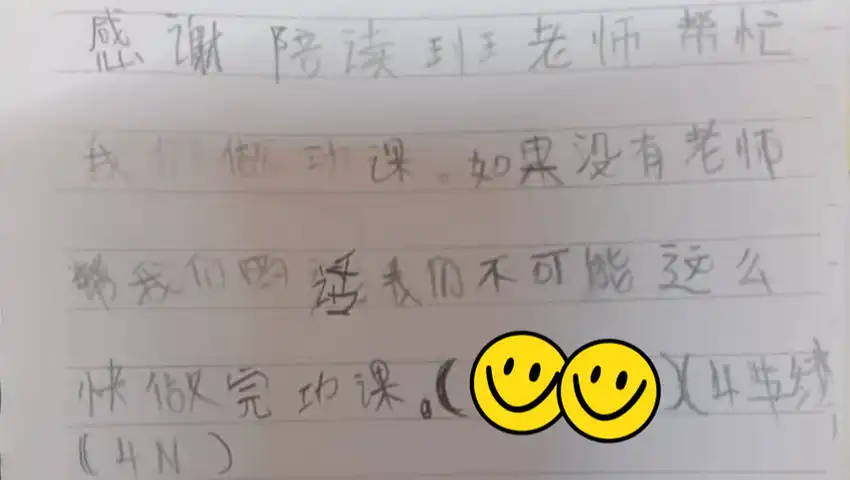 感谢陪读班老师帮忙
我们做功课。如果没有老师
帮我们的话我们不可能这么
快做完功课。()(4年级)
(4N)